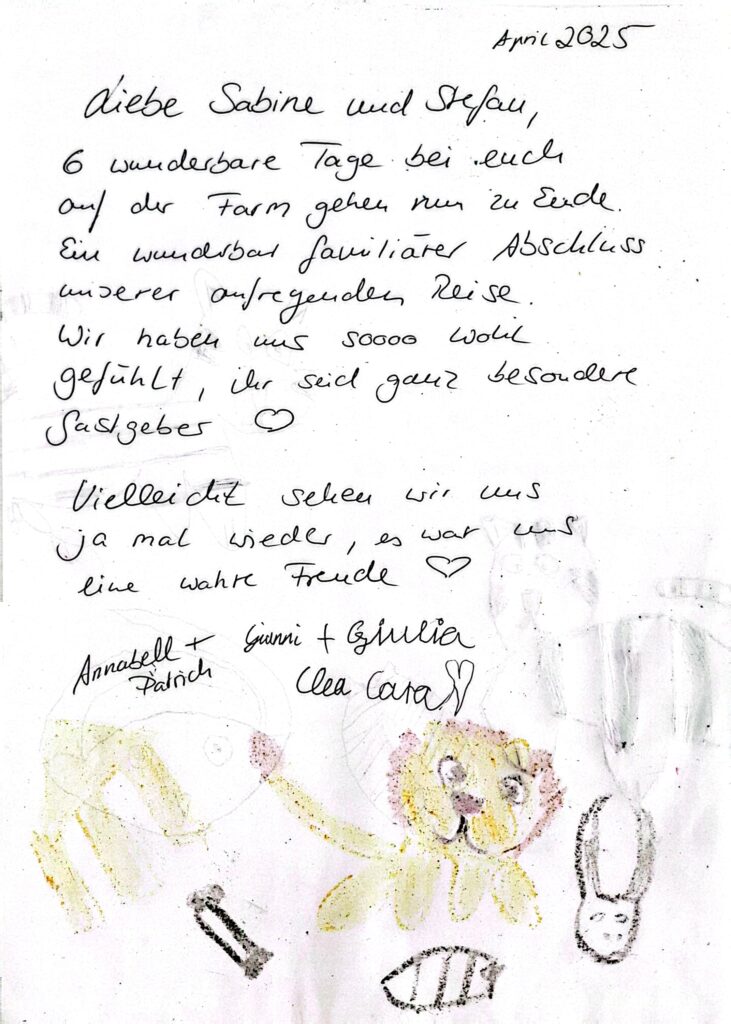 April 2025
Liebe Sabine und Stefan,
6 wunderbare Tage bei euch
auf der Farm gehen nun zu Ende.
Ein wunderbar familiärer Abschluss
unserer aufregenden Reise.
Wir haben uns soooo wohl
gefühlt, ihr seid ganz besondere
Gastgeber ♡
Vielleicht sehen wir uns
ja mal wieder, es war uns
eine wahre Freude ♡
Annabell + Patrick
Gianni + Giulia
Clea Cara